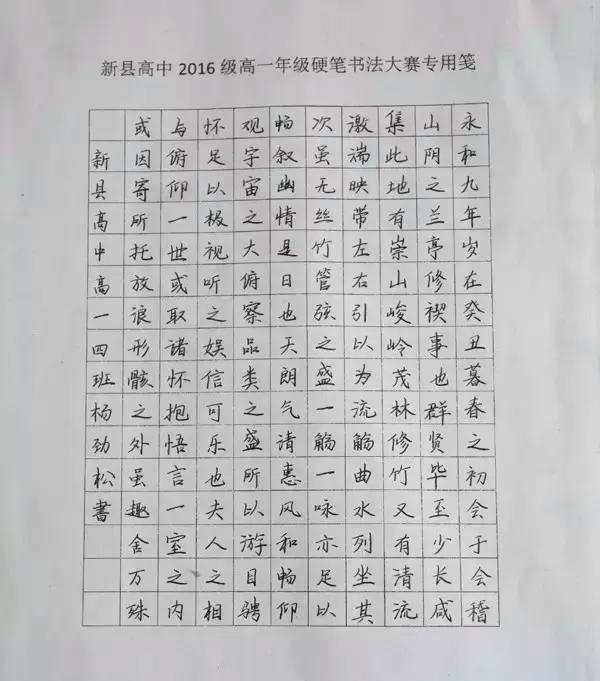 新县高中 2016 级高一年级硬笔书法大赛专用笺
永和九年岁在癸丑暮春之初会于会稽
山阴之兰亭修禊事也群贤毕至少长咸
集此地有崇山峻岭茂林修竹又有清流
激湍映带左右引以为流觞曲水列坐其
次虽无丝竹管弦之盛一觞一咏亦足以
畅叙幽情是日也天朗气清惠风和畅仰
观宇宙之大俯察品类之盛所以游目骋
怀足以极视听之娱信可乐也夫人之相
与俯仰一世或取诸怀抱悟言一室之内
或因寄所托放浪形骸之外虽趣舍万殊
新县高中高一四班杨劲松書